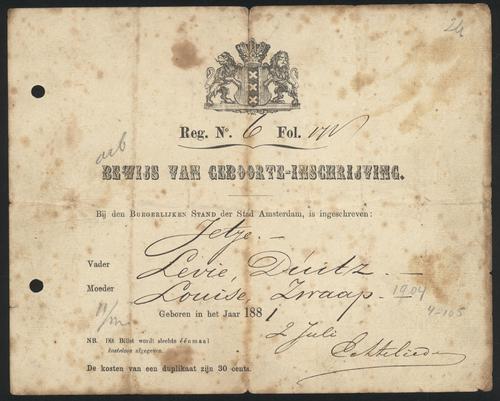 24
Reg. No. 6 Fol. 17v
BEWIJS VAN GEBOORTE-INSCHRIJVING.
Bij den BURGERLIJKEN STAND der Stad Amsterdam, is ingeschreven:
Jetje.
Vader Levie, Duitz
Moeder Louise, Zwaap. 1904
4-105
Geboren in het Jaar 1881
2 Juli
NB. Dit Billet wordt slechts éénmaal
kosteloos afgegeven.
De kosten van een duplikaat zijn 30 cents.